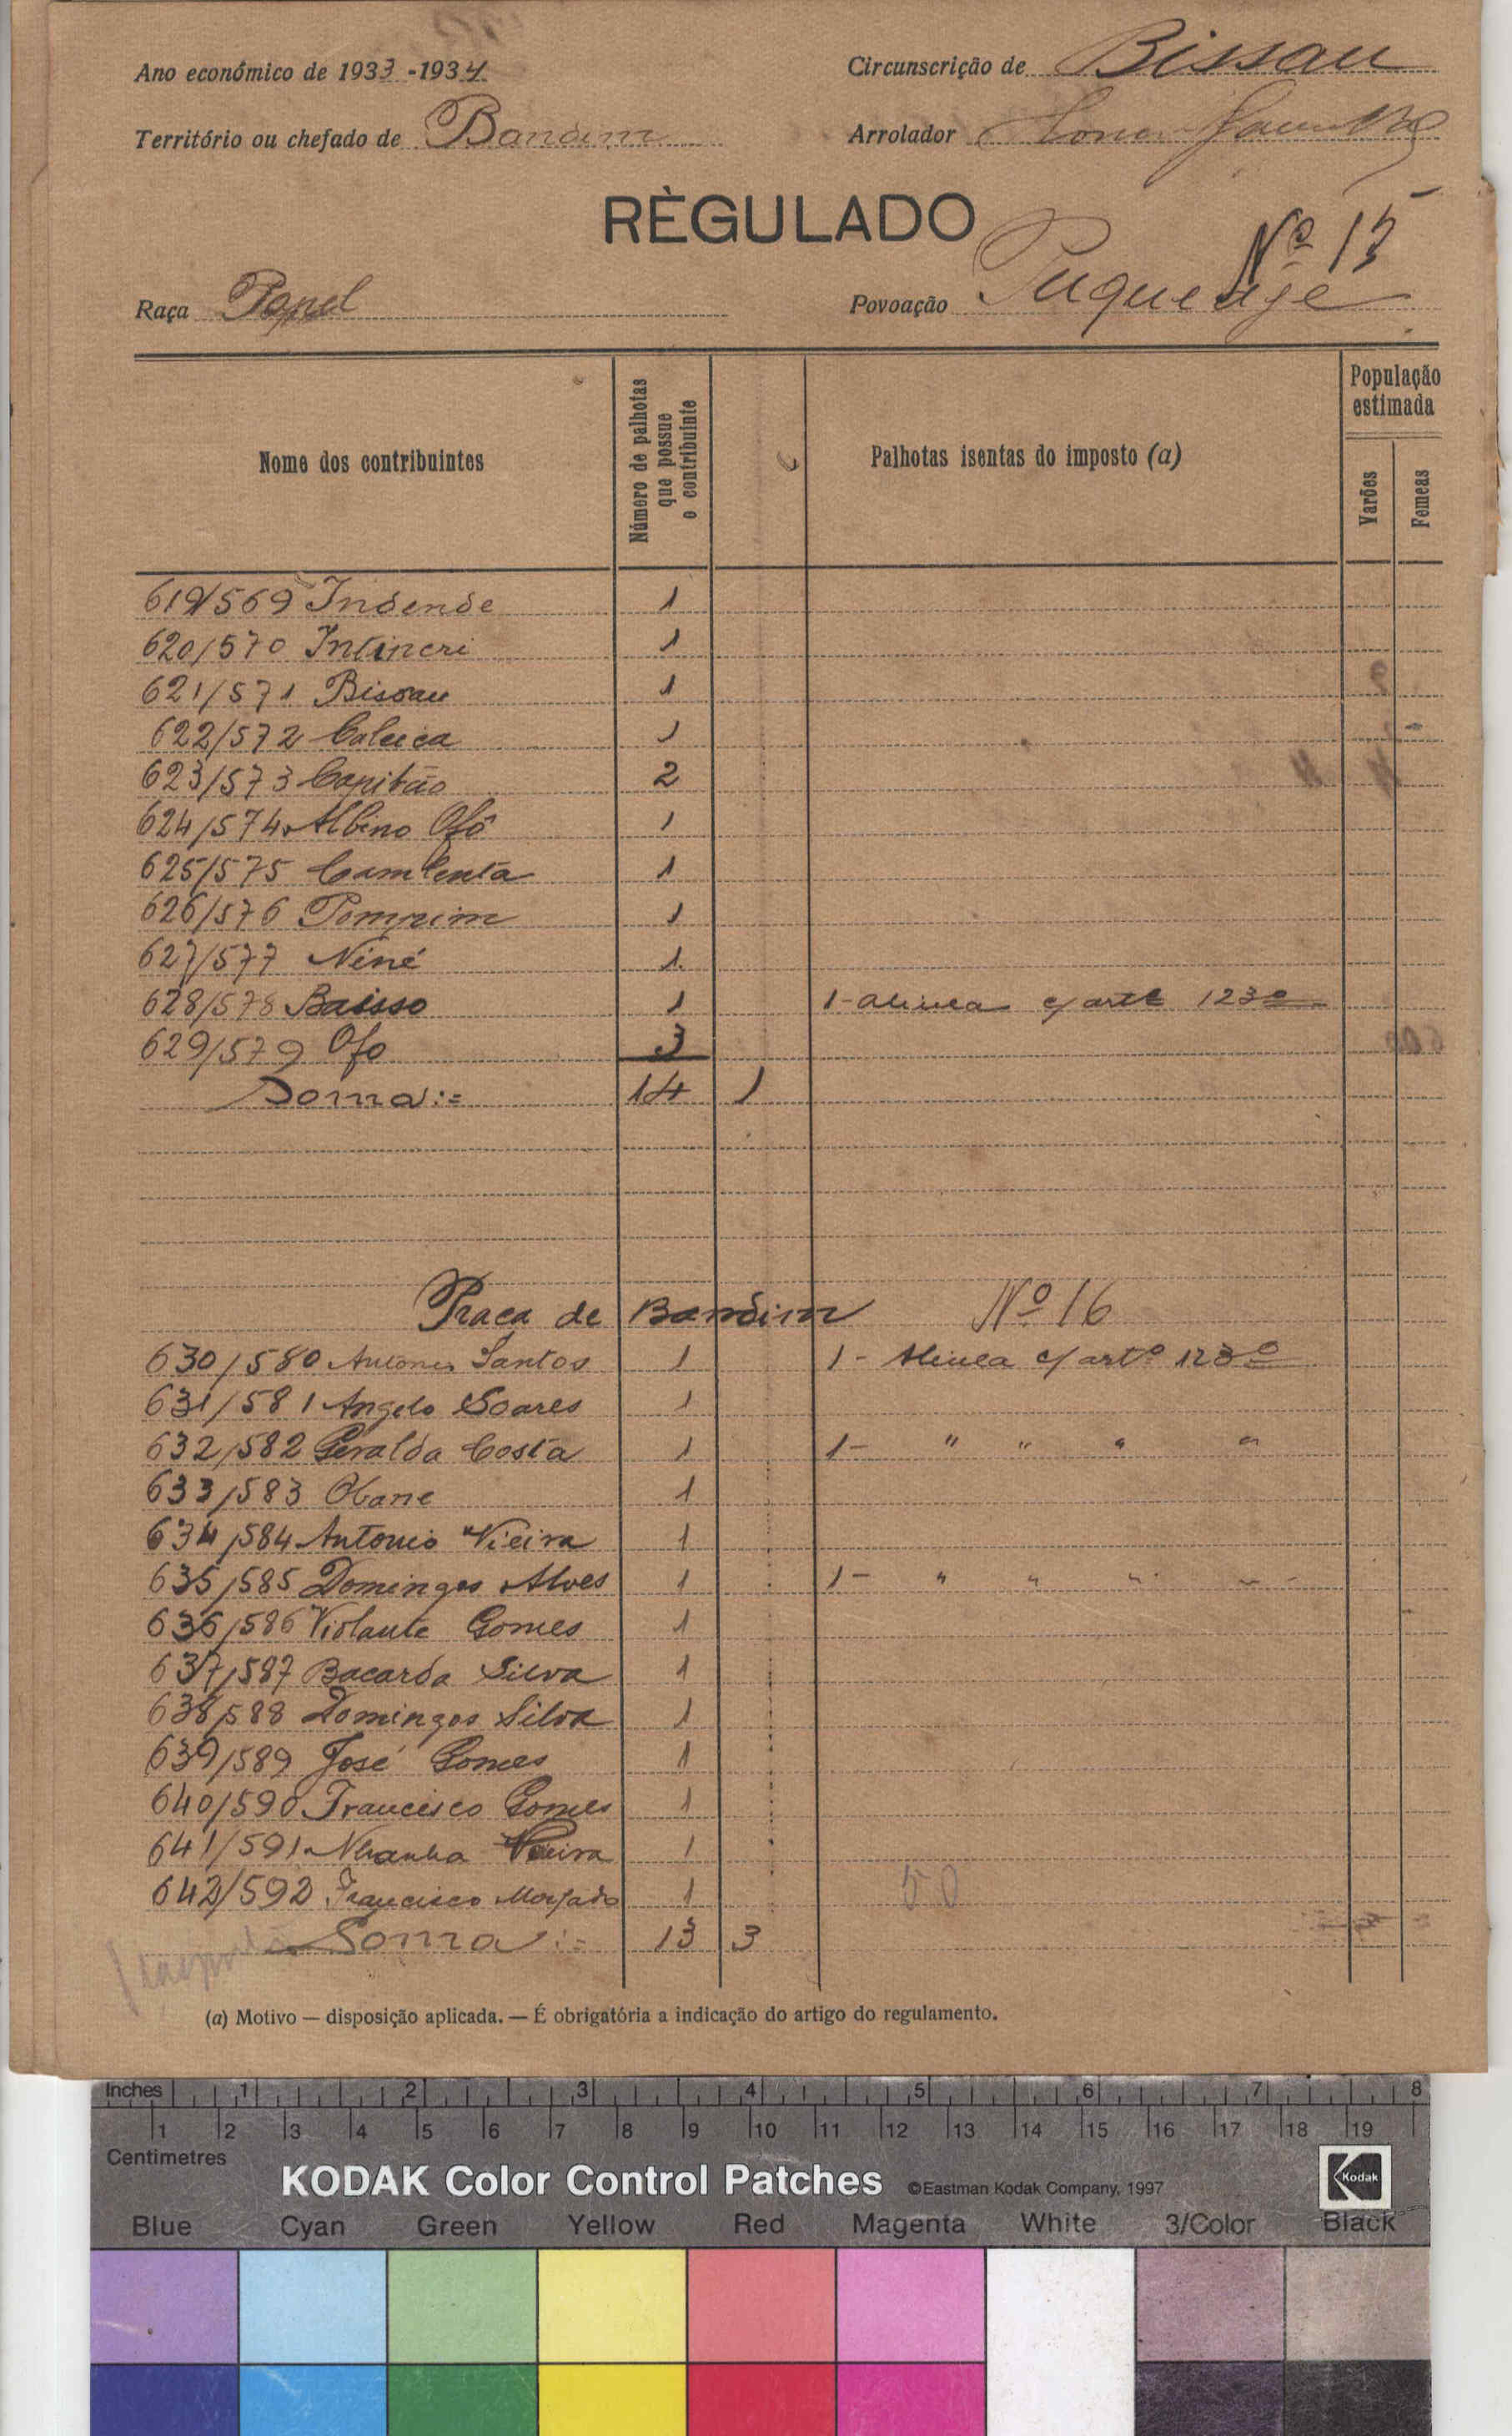 Ano económico de 1933-1934 Circunscrição de Bissau
Território ou chefado de Bandim Arrolador
RÈGULADO
Nº 15
Raça Papel Povoação
Nome dos contribuintes Número de palhotas que possue o contribuinte Palhotas isentas do imposto (a) População estimada Varões Femeas
619/569 Indende 1
620/570 1
621/571 Bissau 1
622/572 1
623/573 Capitão 2
624/574 Albino Ofô 1
625/575 1
626/576 Pomprim 1
627/577 Niné 1
628/578 Baisso 1 1-alinea c/ artº 123º
629/579 Ofo 3
Soma:= 14 1
Praca de Bandim Nº 16
630/580 Antonio Santos 1 1- Alinea c/ artº 123º
631/581 Angelo Soares 1
632/582 Geralda Costa 1 1- " " " "
633/583 1
634/584 Antonio Vieira 1
635/585 Domingos Alves 1 1- " " " "
636/586 Violante Gomes 1
637/587 Bacarda Silva 1
638/588 Domingos Silva 1
639/589 José Gomes 1
640/590 Francisco Gomes 1
641/591 Nhanha 1
642/592 Francisco Morgado 1
50
Soma:= 13 3
(a) Motivo — disposição aplicada. — É obrigatória a indicação do artigo do regulamento.
Inches 1 2 3 4 5 6 7 8
1 2 3 4 5 6 7 8 9 10 11 12 13 14 15 16 17 18 19
Centimetres
KODAK Color Control Patches ©Eastman Kodak Company, 1997 Kodak
Blue Cyan Green Yellow Red Magenta White 3/Color Black